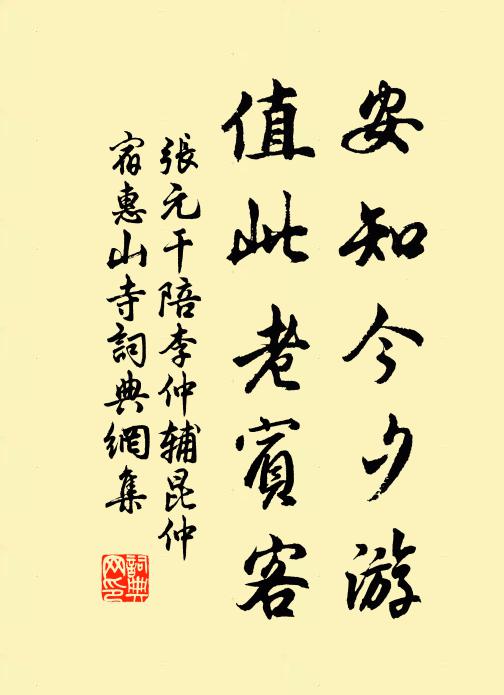 安知今夕游
值此老賓客
張元干陪李仲輔昆仲
宿惠山寺詞典網集
詞典
网印